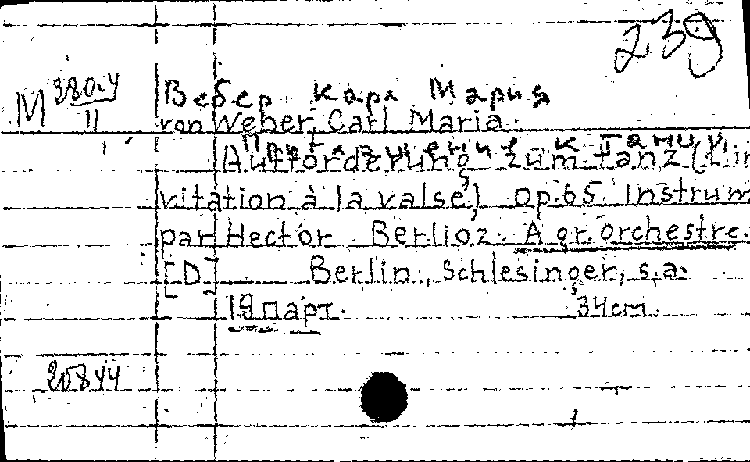 239
M 380.4
II
Вебер Карл Мария
von Weber, Carl Maria.
Приглашение к танцу
Aufforderung zum Tanz (L'in
vitation à la valse) op.65. Instrum
par Hector Berlioz. A gr. orchestre.
[D] Berlin, Schlesinger, s.a.
19 парт. 34 cm.
20844